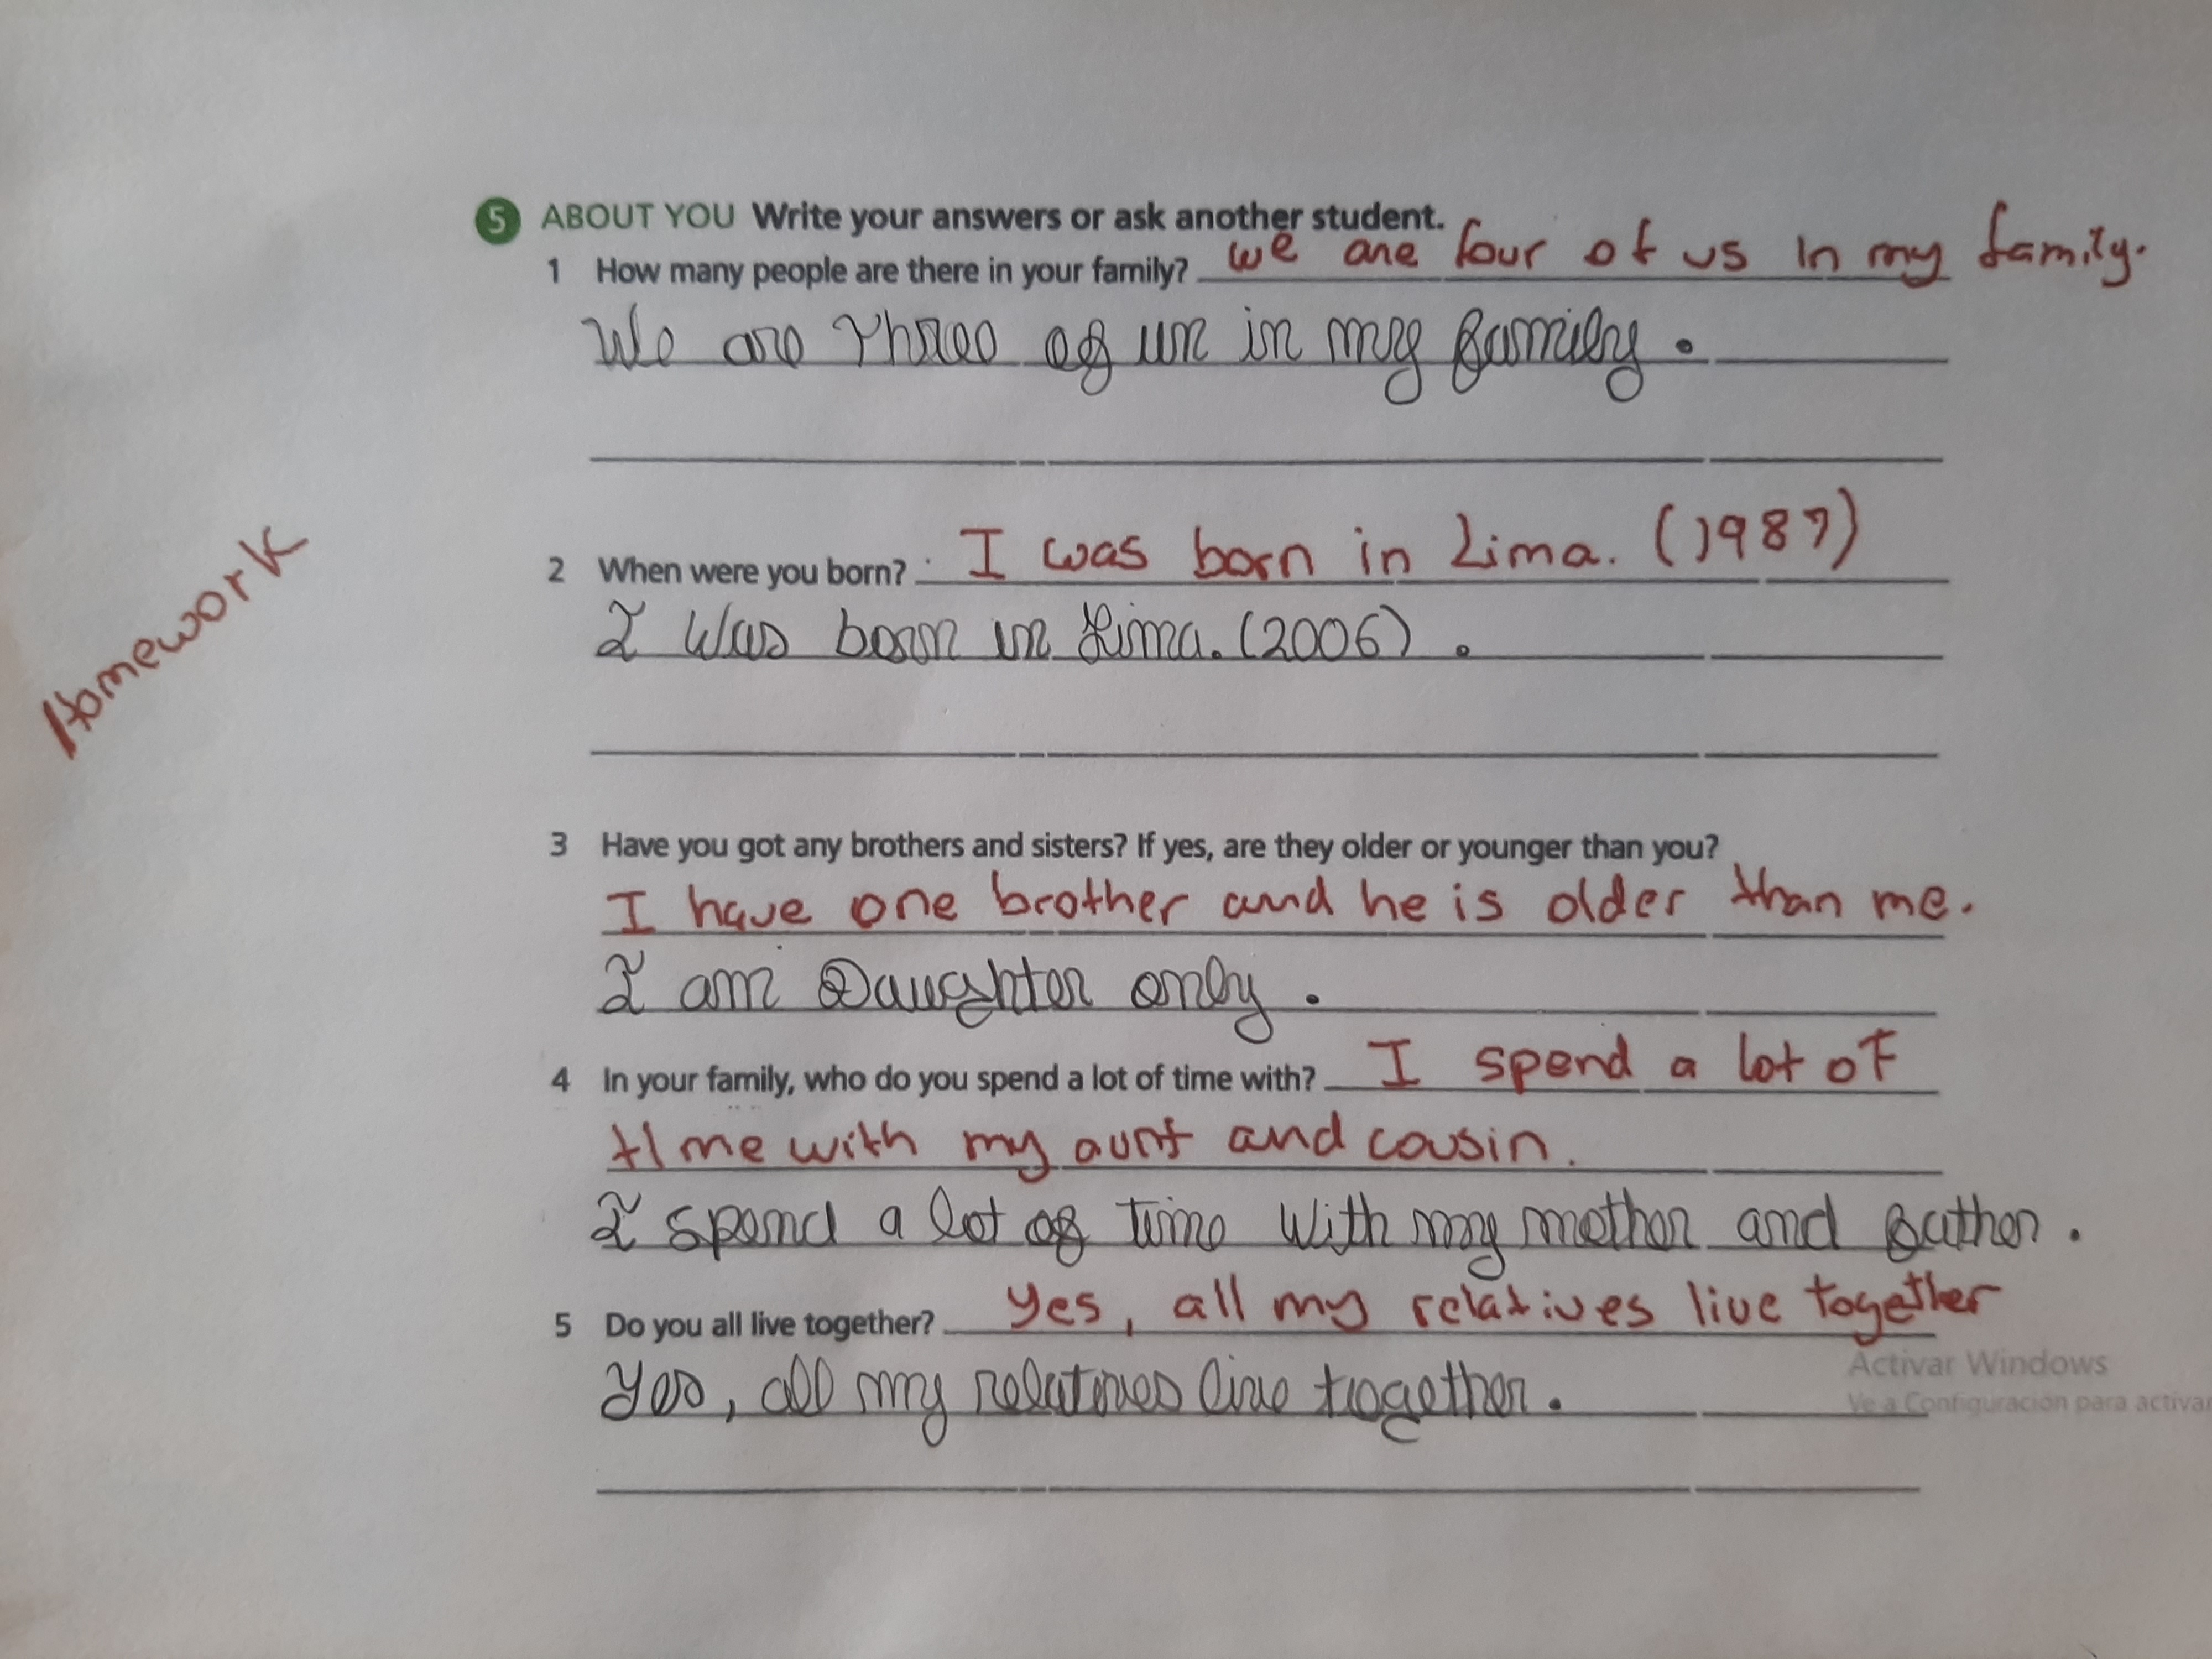 5 ABOUT YOU Write your answers or ask another student.
1 How many people are there in your family? we are four of us in my family.
We are three of us in my family.
2 When were you born? I was born in Lima. (1987)
I was born in Lima. (2006).
Homework
3 Have you got any brothers and sisters? If yes, are they older or younger than you?
I have one brother and he is older than me.
I am Daughter only.
4 In your family, who do you spend a lot of time with? I spend a lot of
time with my aunt and cousin.
I spend a lot of time with my mother and father.
5 Do you all live together? Yes, all my relatives live together
Yes, all my relatives live together.
Activar Windows
Ve a Configuración para activar